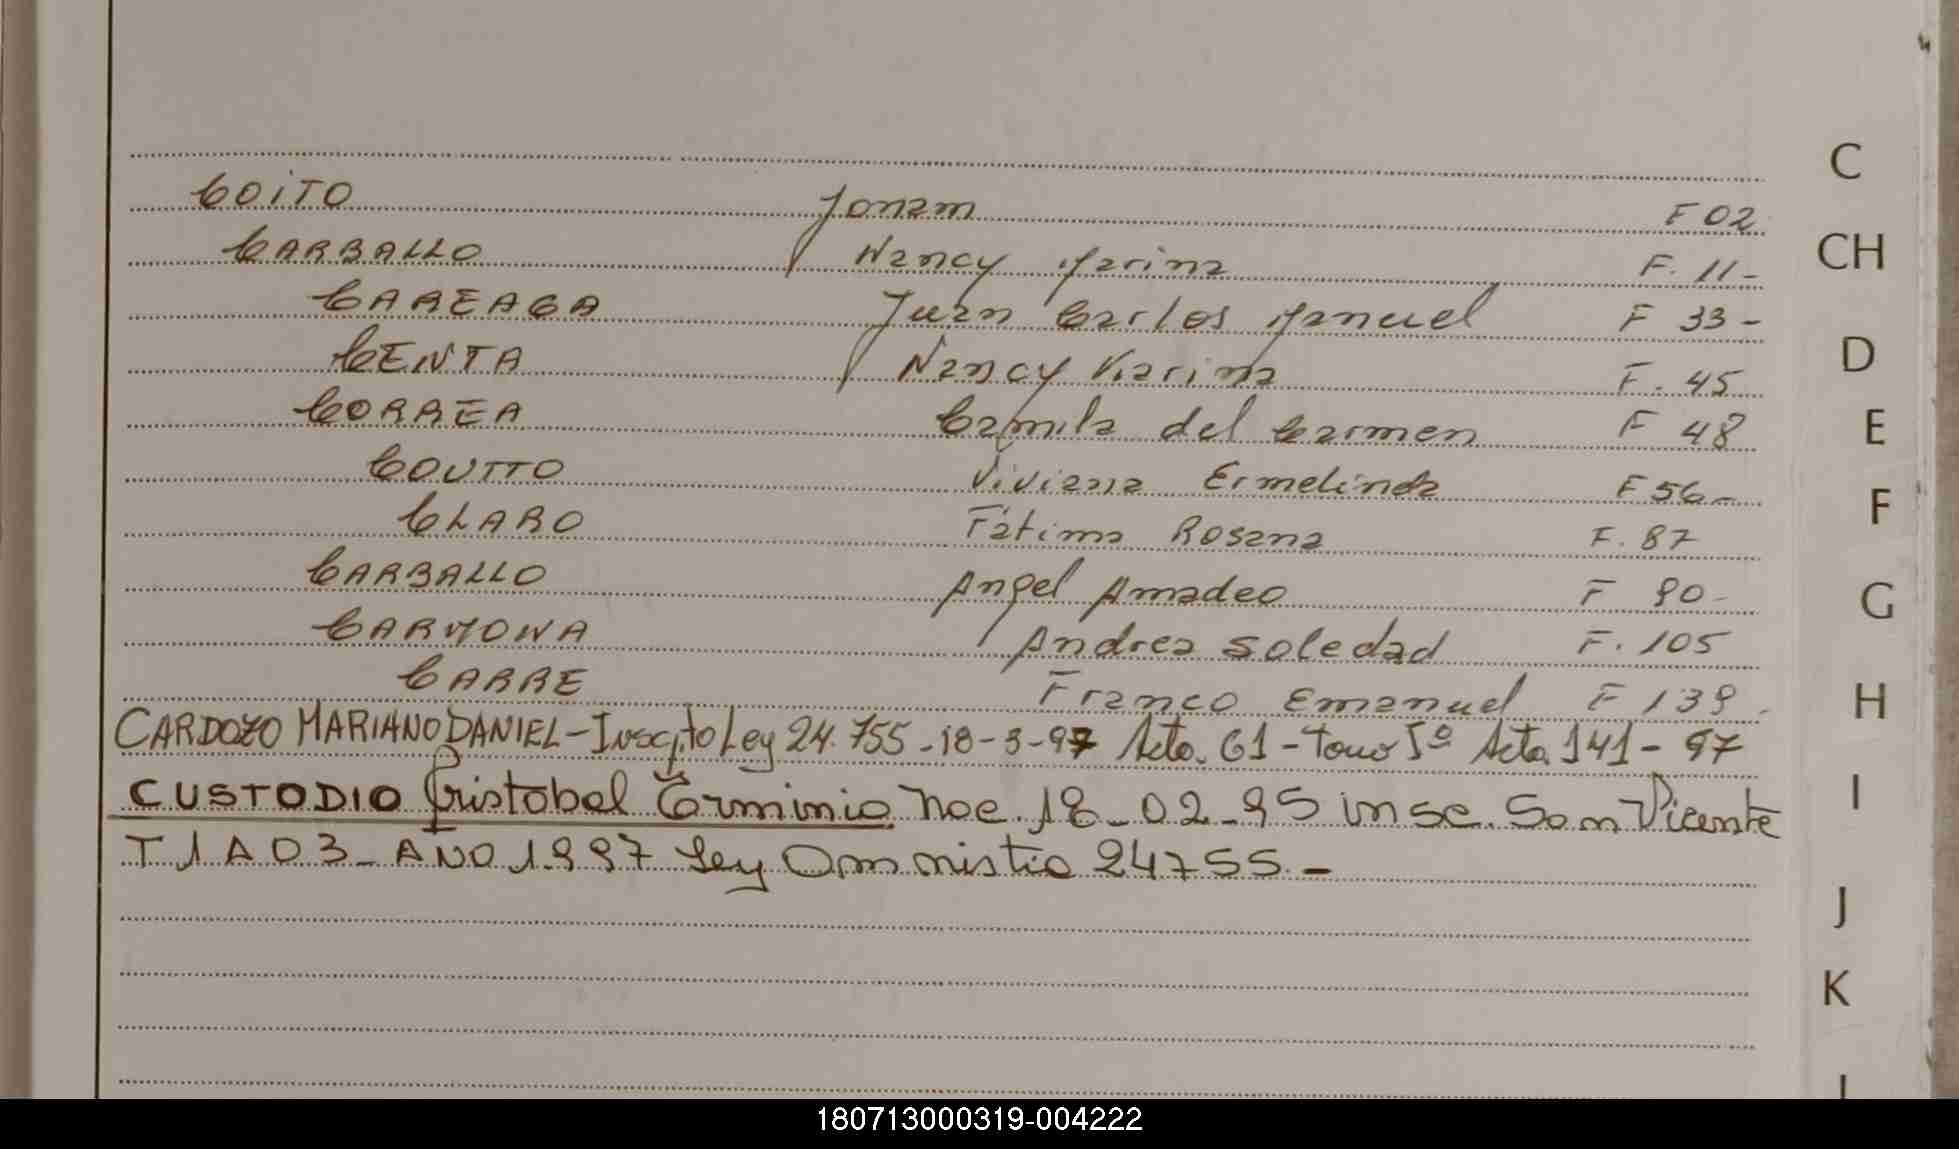 COITO Jonam F 02
CARBALLO Nancy Marina F. 11-
CAREAGA Juan Carlos Manuel F 33-
CENTA Nancy Karina F. 45
CORREA Camila del Carmen F 48
COUTTO Viviana Ermelinda F 56-
CLARO Fátima Rosana F. 87
CARBALLO Angel Amadeo F 90-
CARMONA Andrea Soledad F. 105
CARRE Franco Emanuel F 139.
CARDOZO MARIANO DANIEL - Inscpto Ley 24.755 - 18-3-97 Acta. 61 - Tomo Iº Acta 141 - 97
CUSTODIO Cristobal Erminio Noc. 18-02-95 insc. San Vicente
T 1 A 03 - AÑO 1997 Ley Amnistia 24755.-
C
CH
D
E
F
G
H
I
J
K
180713000319-004222